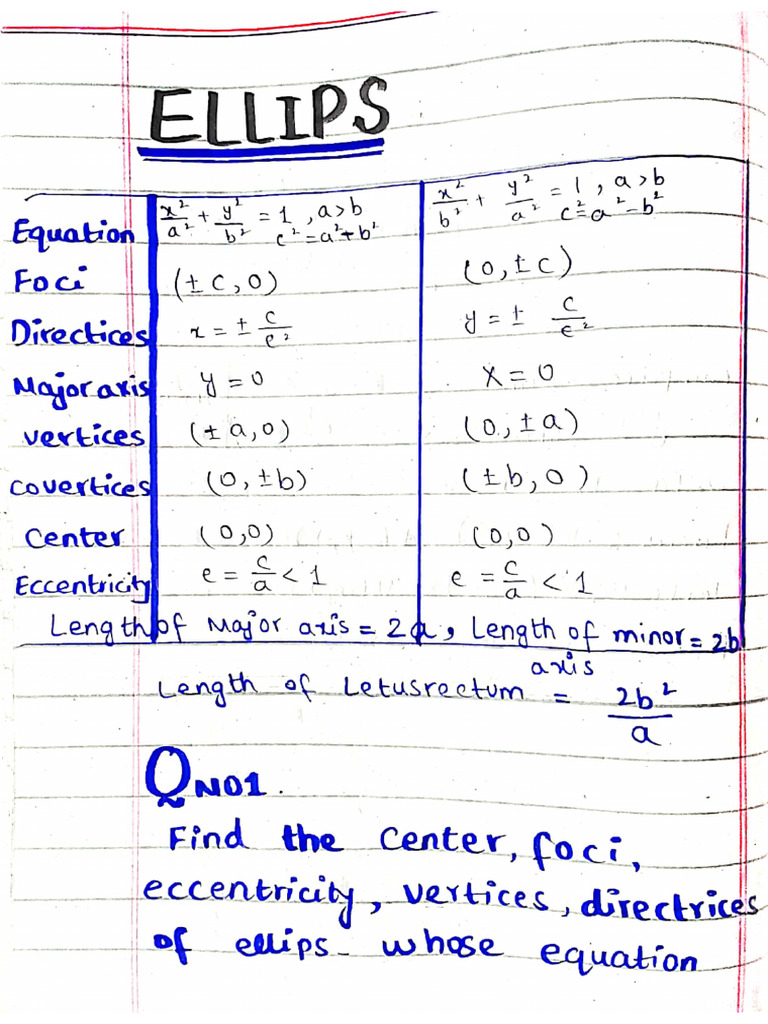 ELLIPS
Equation x²/a² + y²/b² = 1 , a>b c² = a² + b² x²/b² + y²/a² = 1 , a>b c² = a² - b²
Foci (± c, 0) (0, ± c)
Directices x = ± c/e² y = ± c/e²
Major axis y = 0 x = 0
vertices (± a, 0) (0, ± a)
covertices (0, ± b) (± b, 0)
Center (0,0) (0,0)
Eccentricity e = c/a < 1 e = c/a < 1
Length of Major axis = 2a, Length of minor axis = 2b
Length of Letusrectum = 2b²/a
QNO1.
Find the center, foci,
eccentricity, vertices, directrices
of ellips- whose equation